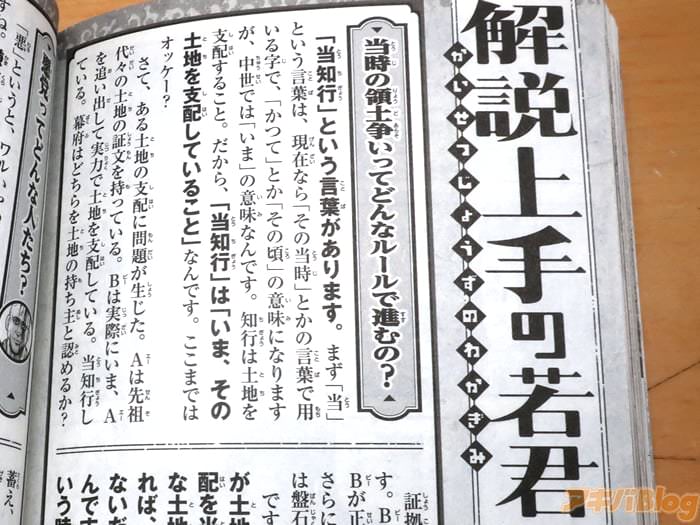 解説上手の若君
かいせつじょうずのわかぎみ
当時の領土争いってどんなルールで進むの?
「当知行」という言葉があります。まず「当」
という言葉は、現在なら「その当時」とかの言葉で用
いる字で、「かつて」とか「その頃」の意味になります
が、中世では「いま」の意味なんです。知行は土地を
支配すること。だから、「当知行」は「いま、その
土地を支配していること」なんです。ここまでは
オッケー?
さて、ある土地の支配に問題が生じた。Aは先祖
代々の土地の証文を持っている。Bは実際にいま、A
を追い出して実力で土地を支配している。当知行し
ている。幕府はどちらを土地の持ち主と認めるか?
証拠
す。B
Bが正
さらに
は盤石
です
が土地
配を当
な土地
れば、
ないだ
んです
いう時
蓄え、
悪党ってどんな人たち?
「悪」というと、ワルい
すね。
アキバBlog